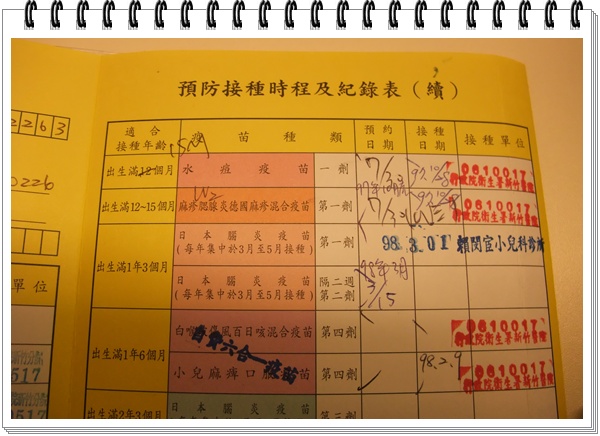 預防接種時程及紀錄表（續）
2263
適合接種年齡 疫苗種類 預約日期 接種日期 接種單位
出生滿12個月 水痘疫苗 一劑 0610017
行政院衛生署新竹醫院
出生滿12~15個月 麻疹腮腺炎德國麻疹混合疫苗 第一劑 0610017
行政院衛生署新竹醫院
出生滿1年3個月 日本腦炎疫苗
(每年集中於3月至5月接種) 第一劑 98.3.01 賴閔宦小兒科診所
日本腦炎疫苗
(每年集中於3月至5月接種) 隔二週第二劑 98年3月
3/15
單位
出生滿1年6個月 白喉破傷風百日咳混合疫苗 第四劑 0610017
行政院衛生署新竹醫院
自費六合一疫苗
小兒麻痺口服疫苗 第四劑 98.2.9 0610017
行政院衛生署新竹醫院
517
出生滿2年3個月 日本腦炎疫苗 第三劑
517